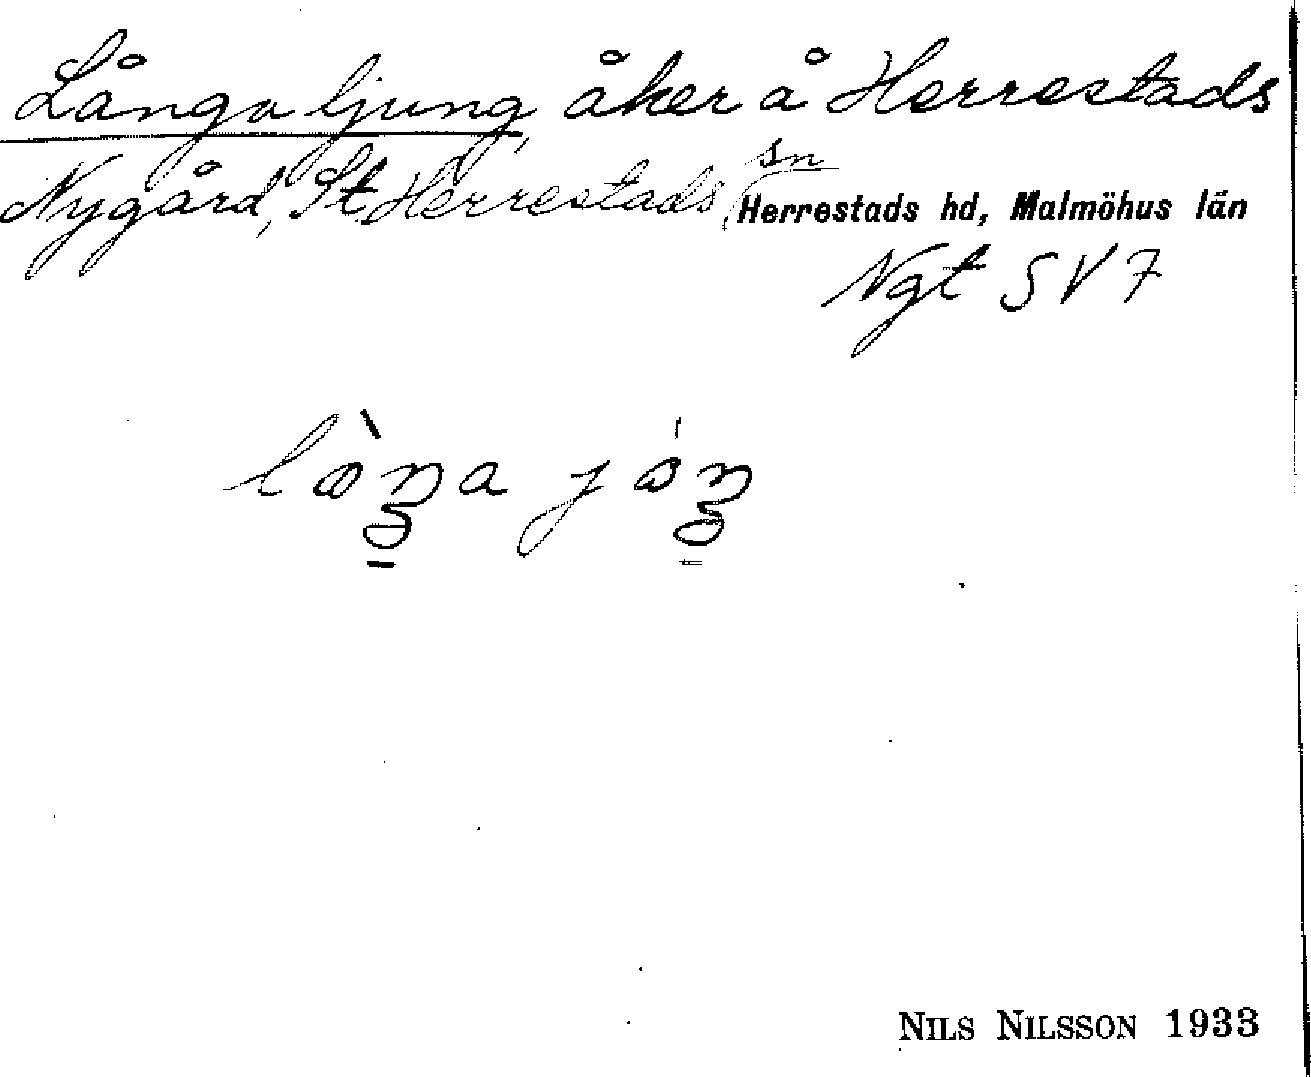 Långa ljung, åker å Herrestads
Nygård, St. Herrestads sn
Herrestads hd, Malmöhus län
Ngt SV 7
NILS NILSSON 1933